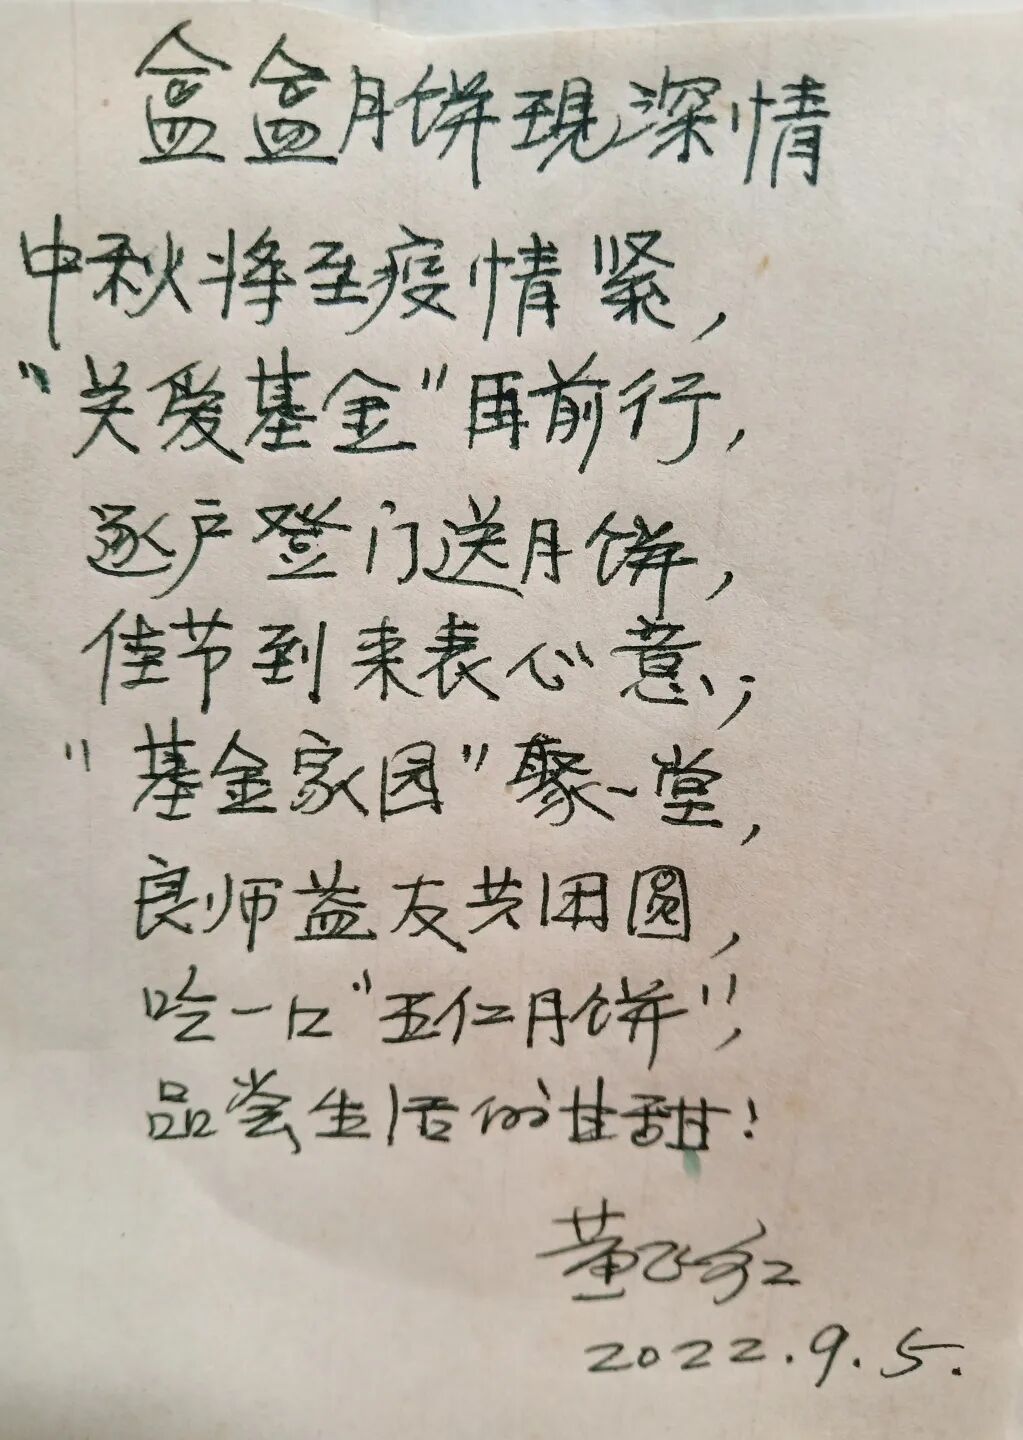 盒盒月饼現深情
中秋将至疫情紧，
“关爱基金”再前行，
逐户登门送月饼，
佳节到来表心意；
“基金家园”聚一堂，
良师益友共团圆，
吃一口“五仁月饼”，
品尝生活的甘甜！
董飞红
2022.9.5.